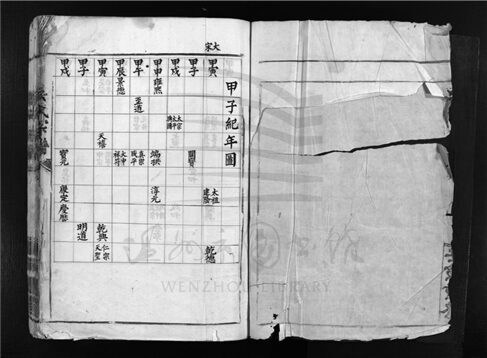 大宋
甲子紀年圖
甲寅
太祖
建隆
乾德
甲子
開寶
甲戌
太宗
太平
興國
甲申
雍熙
端拱
淳元
甲午
至道
真宗
咸平
甲辰
景德
大中
祥符
甲寅
天禧
乾興
仁宗
天聖
甲子
明道
甲戌
寶元
康定
慶曆
WENZHOU LIBRARY